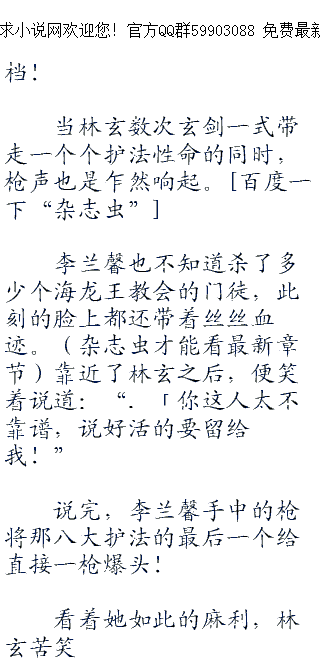 求小说网欢迎您！官方QQ群59903088 免费最新
档！
当林玄数次玄剑一式带
走一个个护法性命的同时，
枪声也是乍然响起。[百度一
下“杂志虫”]
李兰馨也不知道杀了多
少个海龙王教会的门徒，此
刻的脸上都还带着丝丝血
迹。（杂志虫才能看最新章
节）靠近了林玄之后，便笑
着说道：“．「你这人太不
靠谱，说好活的要留给
我！”
说完，李兰馨手中的枪
将那八大护法的最后一个给
直接一枪爆头！
看着她如此的麻利，林
玄苦笑